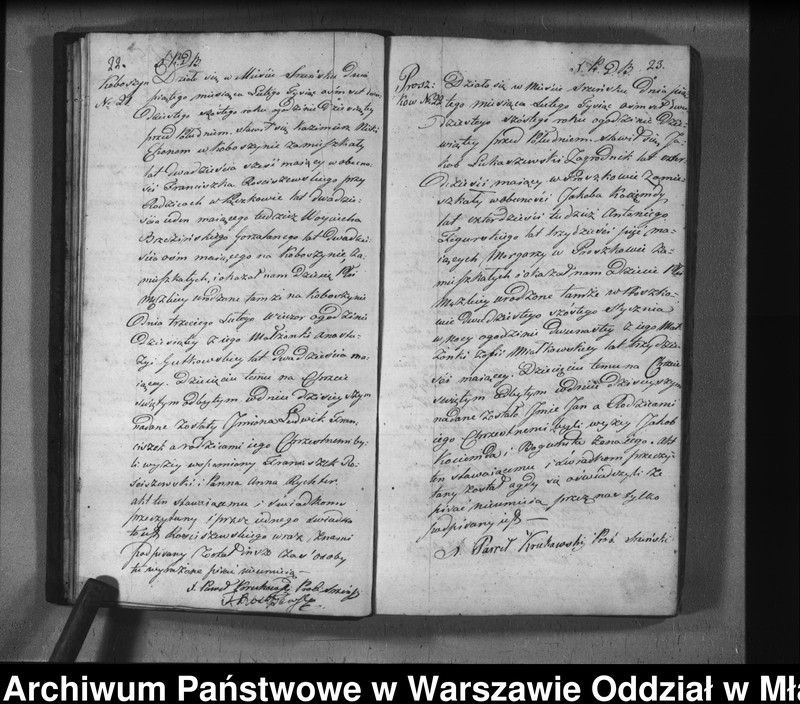 22.
Koboszyn
No 21
Działo się w Mieście Szreńsku Dnia
piątego miesiąca Lutego Tysiąc osimset dwu
dziestego szóstego roku ogodzinie Dziewiątey
przed Południem. Stawił się Kazimierz
Ekonom w Koboszynie zamieszkały
lat dwadzieścia sześć maiący w obecno-
ści Franciszka Rosciszewskiego przy
Rodzicach w lat dwadzie-
ścia ieden maiącego tudzież Woyciecha
Brzezińskiego Gorzalanego lat dwadzie
ścia osm maiącego na Koboszynie Za-
mieszkałych, i okazał nam Dziecię Płci
Męzkiey urodzone tamże na Koboszynie
Dnia trzeciego Lutego wieczor ogodzinie
Dziesiątey z iego Małżonki Anasta-
zyi Gutkowskiey lat dwadzieścia ma-
iącey. Dziecięciu temu na Chrzcie
świętym odbytym wdniu dzisieyszym
nadane zostały Imiona Ludwik Fran-
ciszek a rodzicami iego Chrzestnemi by-
li wyżey wspomniany Franciszek Ro-
ściszewski i Panna Anna Rychter.
akt ten stawaiącemu i świadkom
przeczytany i przez iednego świadka
to iest Rosciszewskiego wraz znami
podpisany został insze zaś osoby
tu wyrażone pisać nieumieią
X. Paweł Krukowski Prob. Szreński
23.
Prosz-
kow No 22
Działo się w Mieście Szreńsku Dnia pią-
tego miesiąca Lutego Tysiąc osimset Dwu
dziestego szóstego roku ogodzinie Dzie-
wiątey przed Południem. Stawił się Ja-
kob Łukaszewski Zagrodnik lat czter-
dzieści maiący w Proszkowie Zamie-
szkały wobecności Jakoba Kociemdy
lat czterdzieści tudzież Antoniego
Zegurskiego lat trzydzieści pięć ma-
iących Morgarzy w Proszkowie Za-
mieszkałych i okazał nam Dziecię Płci
Męzkiey urodzone tamże w Proszko-
wie dwudziestego szóstego stycznia
w Nocy ogodzinie Dwunastey z iego Mał-
żonki Zofii Miałkowskiey lat trzydzie-
ści maiącey. Dziecięciu temu na Chrzcie
świętym odbytym wdniu dzisieyszym
nadane zostało Imie Jan a Rodzicami
iego Chrzestnemi byli wyżey Jakob
Kociemda i Bogumiła żona iego. Akt
ten stawaiącemu i świadkom przeczy-
tany został agdy się oświadczyli że
pisać nieumieią przez nas tylko
podpisany iest
X. Paweł Krukowski Prob. Szreński
Archiwum Państwowe w Warszawie Oddział w Mła